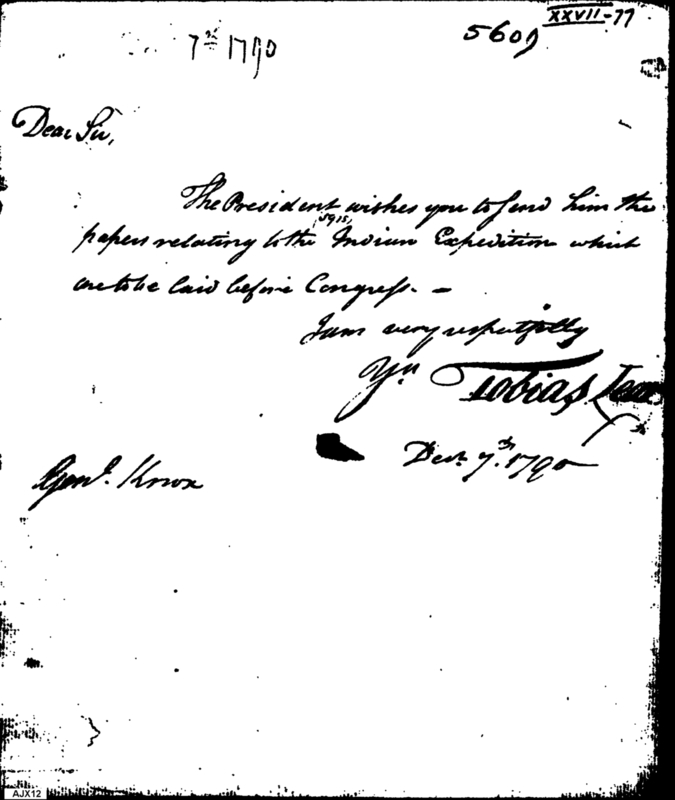 XXVII-77
5609
7th 1790
Dear Sir,
The President wishes you to send him the
papers relating to the Indian Expedition which
are to be laid before Congress. —
I am very respectfully
Yrs Tobias Lear
Decr. 7th. 1790
Genl. Knox
AJX12